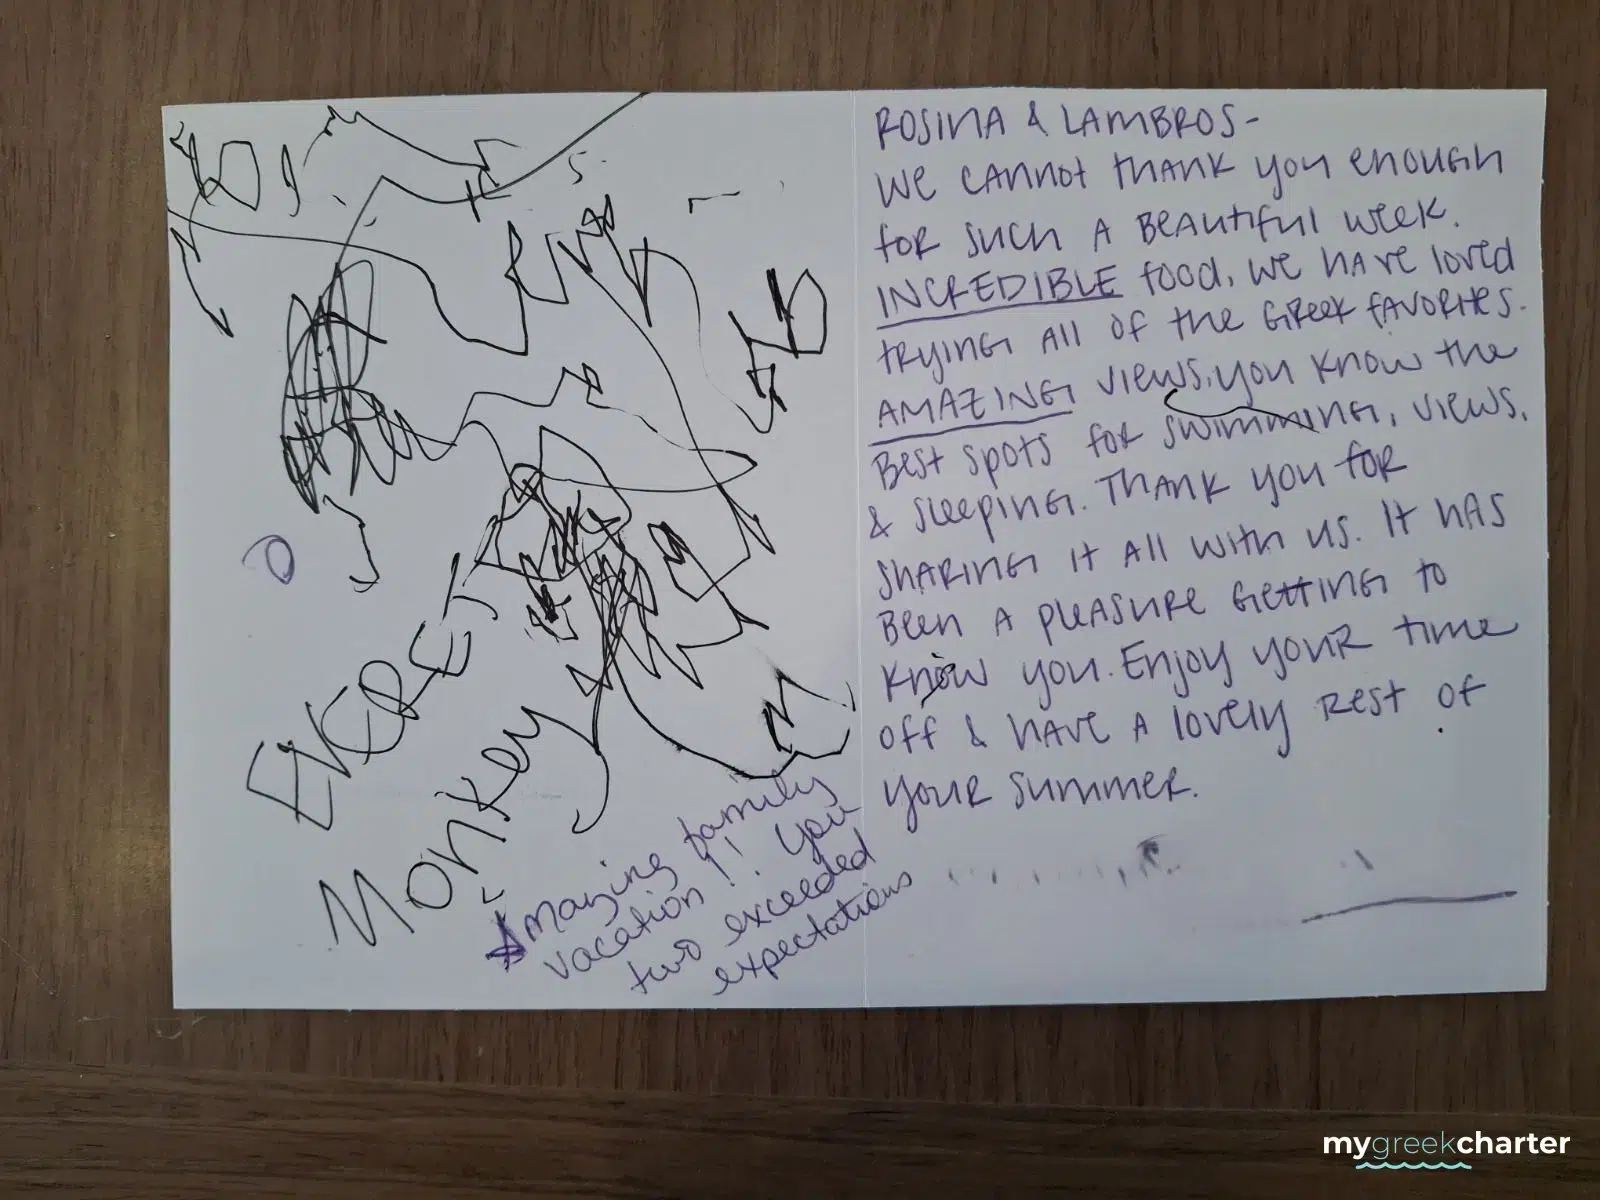 EVERET
Monkey
Amazing family
vacation!! You
two exceeded
expectations
ROSINA & LAMBROS-
We cannot thank you enough
for such a beautiful week.
INCREDIBLE food, we have loved
trying all of the Greek favorites.
AMAZING views, you know the
best spots for swimming, views,
& sleeping. Thank you for
sharing it all with us. It has
been a pleasure getting to
know you. Enjoy your time
off & have a lovely rest of
your summer.
mygreekcharter